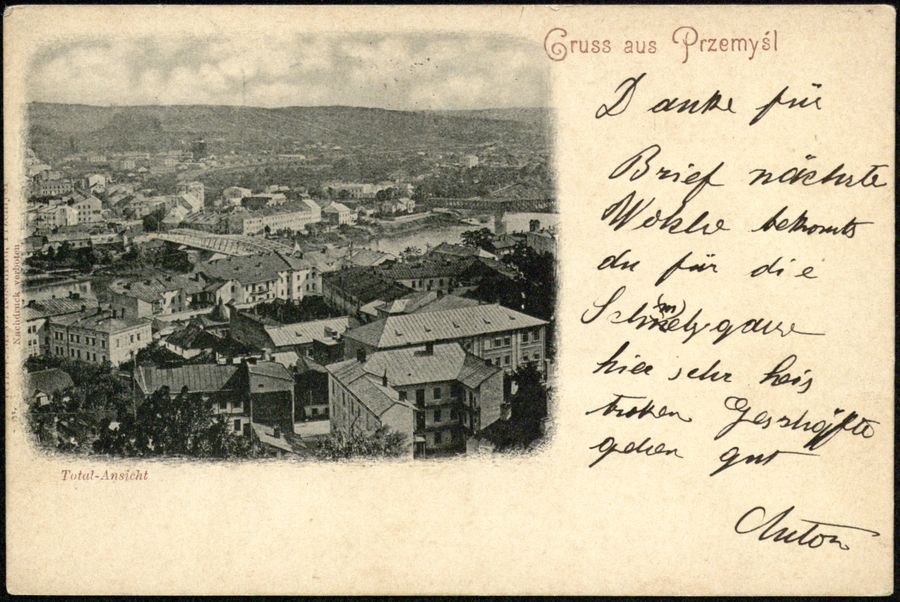 Gruss aus Przemyśl
Danke für
Brief nächste
Wohe bekomts
du für die
hier sehr heis
troken Geschäfte
gehen gut
Anton
Total-Ansicht
Nachdruck verboten